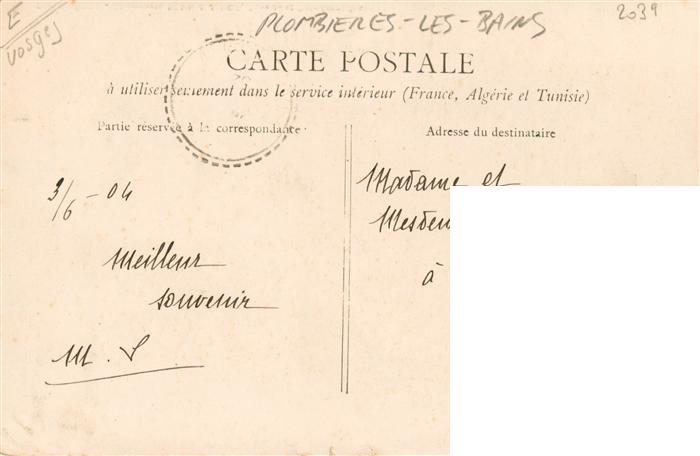 E
Vosges
PLOMBIERES-LES-BAINS
2039
CARTE POSTALE
à utiliser seulement dans le service intérieur (France, Algérie et Tunisie)
Partie réservée à la correspondance
Adresse du destinataire
3/6 - 04
Meilleur
souvenir
M. S
Madame et
à